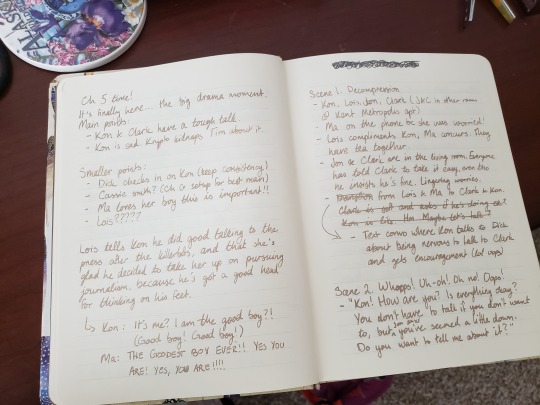 ALASK
Ch 5 time!
It's finally here... the big drama moment.
Main points:
- Kon & Clark have a tough talk.
- Kon is sad. Krypto kidnaps Tim about it.
Smaller points:
- Dick checks in on Kon (keep consistency)
- Cassie smith? (Ch 6 setup for best man)
- Ma loves her boy this is important!!
- Lois?????
Lois tells Kon he did good talking to the
press after the
and that she's
glad he decided to take her up on pursuing
journalism, because he's got a good head
for thinking on his feet.
↳ Kon: It's me? I am the good boy?!
(Good boy! Good boy!)
Ma: THE GOODEST BOY EVER!! YES YOU
ARE! YES, YOU ARE!!!!
Scene 1. Decompression
- Kon, Lois, Jon, Clark (J&C in other room
@ Kent Metropolis apt)
- Ma on the phone bc she was worried!
- Lois compliments Kon, Ma concurs. They
have tea together.
- Jon & Clark are in the living room. Everyone
has told Clark to take it easy, even tho
he insists he's fine. Lingering worries.
- Transition from Lois & Ma to Clark & Kon.
Clark is
and asks if he's doing ok?
Kon is like, Hm. Maybe let's talk?
- Text convo where Kon talks to Dick
about being nervous to talk to Clark
and gets encouragement (lol oops)
Scene 2. Whoops! Uh-oh! Oh no! Oops!
- "Kon! How are you? Is everything okay?
You don't have to talk if you don't want
to, but Jon says you've seemed a little down.
Do you want to tell me about it?"